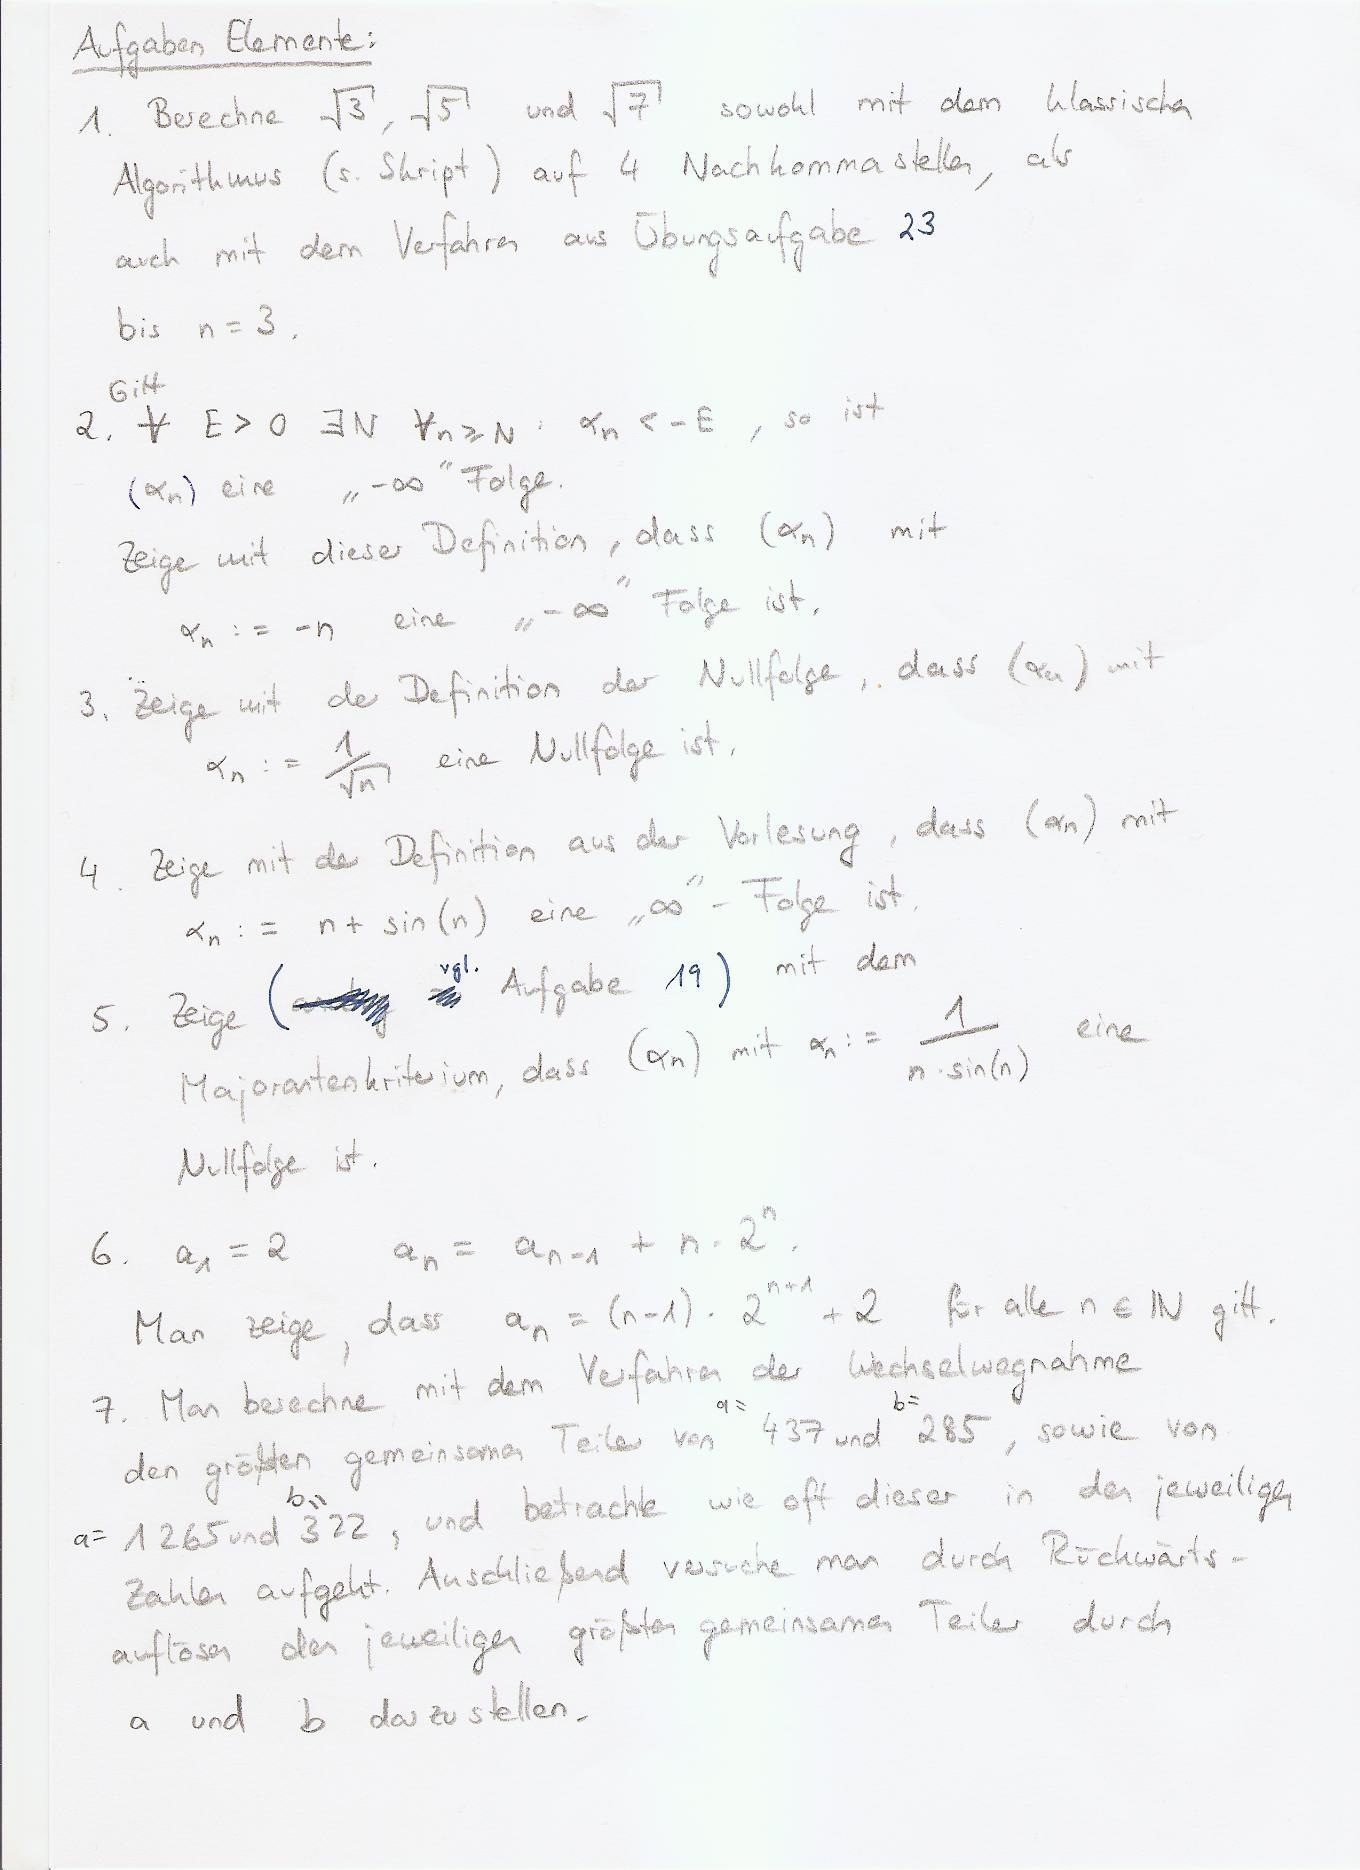 Aufgaben Elemente:
1. Berechne √3, √5 und √7 sowohl mit dem klassischen
Algorithmus (s. Skript) auf 4 Nachkommastellen, als
auch mit dem Verfahren aus Übungsaufgabe 23
bis n = 3.
Gilt
2. ∀ E > 0 ∃N ∀n≥N : αn < -E, so ist
(αn) eine „-∞" Folge.
Zeige mit dieser Definition, dass (αn) mit
αn := -n eine „-∞" Folge ist.
3. Zeige mit der Definition der Nullfolge, dass (αn) mit
αn := 1/√n eine Nullfolge ist.
4. Zeige mit der Definition aus der Vorlesung, dass (αn) mit
αn := n + sin(n) eine „∞" - Folge ist.
5. Zeige ( vgl. Aufgabe 19) mit dem
Majorantenkriterium, dass (αn) mit αn := 1/(n · sin(n)) eine
Nullfolge ist.
6. a₁ = 2 aₙ = aₙ₋₁ + n · 2ⁿ.
Man zeige, dass aₙ = (n-1) · 2ⁿ⁺¹ + 2 für alle n ∈ ℕ gilt.
7. Man berechne mit dem Verfahren der Wechselwegnahme
den größten gemeinsamen Teiler von a= 437 und b= 285, sowie von
a= 1265 und b= 322, und betrachte wie oft dieser in den jeweiligen
Zahlen aufgeht. Anschließend versuche man durch Rückwärts-
auflösen den jeweiligen größten gemeinsamen Teiler durch
a und b darzustellen.